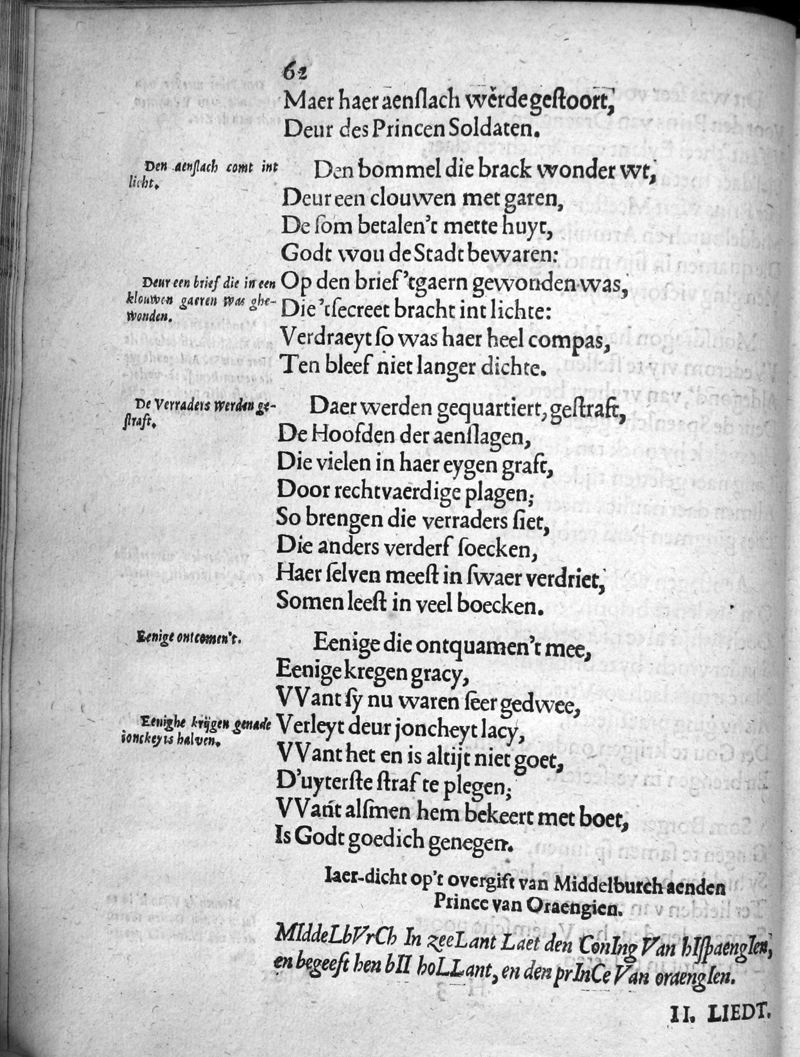 62
Maer haer aenslach wérde gestoort,
Deur des Princen Soldaten.
Den aenslach comt int
licht.
Den bommel die brack wonder wt,
Deur een clouwen met garen,
De som betalen't mette huyt,
Godt wou de Stadt bewaren:
Deur een brief die in een
klouwen gaeren was ghe-
wonden.
Op den brief 'tgaern gewonden was,
Die 'tsecreet bracht int lichte:
Verdraeyt so was haer heel compas,
Ten bleef niet langer dichte.
De Verraders werden ge-
straft.
Daer werden gequartiert, gestraft,
De Hoofden der aenslagen,
Die vielen in haer eygen graft,
Door rechtvaerdige plagen;
So brengen die verraders siet,
Die anders verderf soecken,
Haer selven meest in swaer verdriet,
Somen leest in veel boecken.
Eenige ontcomen't.
Eenige die ontquamen't mee,
Eenige kregen gracy,
VVant sy nu waren seer gedwee,
Eenighe krijgen genade
ionckeyts halven.
Verleyt deur joncheyt lacy,
VVant het en is altijt niet goet,
D'uyterste straf te plegen;
VVant alsmen hem bekeert met boet,
Is Godt goedich genegen.
Iaer-dicht op't overgift van Middelburch aenden
Prince van Oraengien.
MIddeLbVrCh In zeeLant Laet den ConIng Van hIspaengIen,
en begeeft hen bII hoLLant, en den prInCe Van oraengIen.
II. LIEDT.